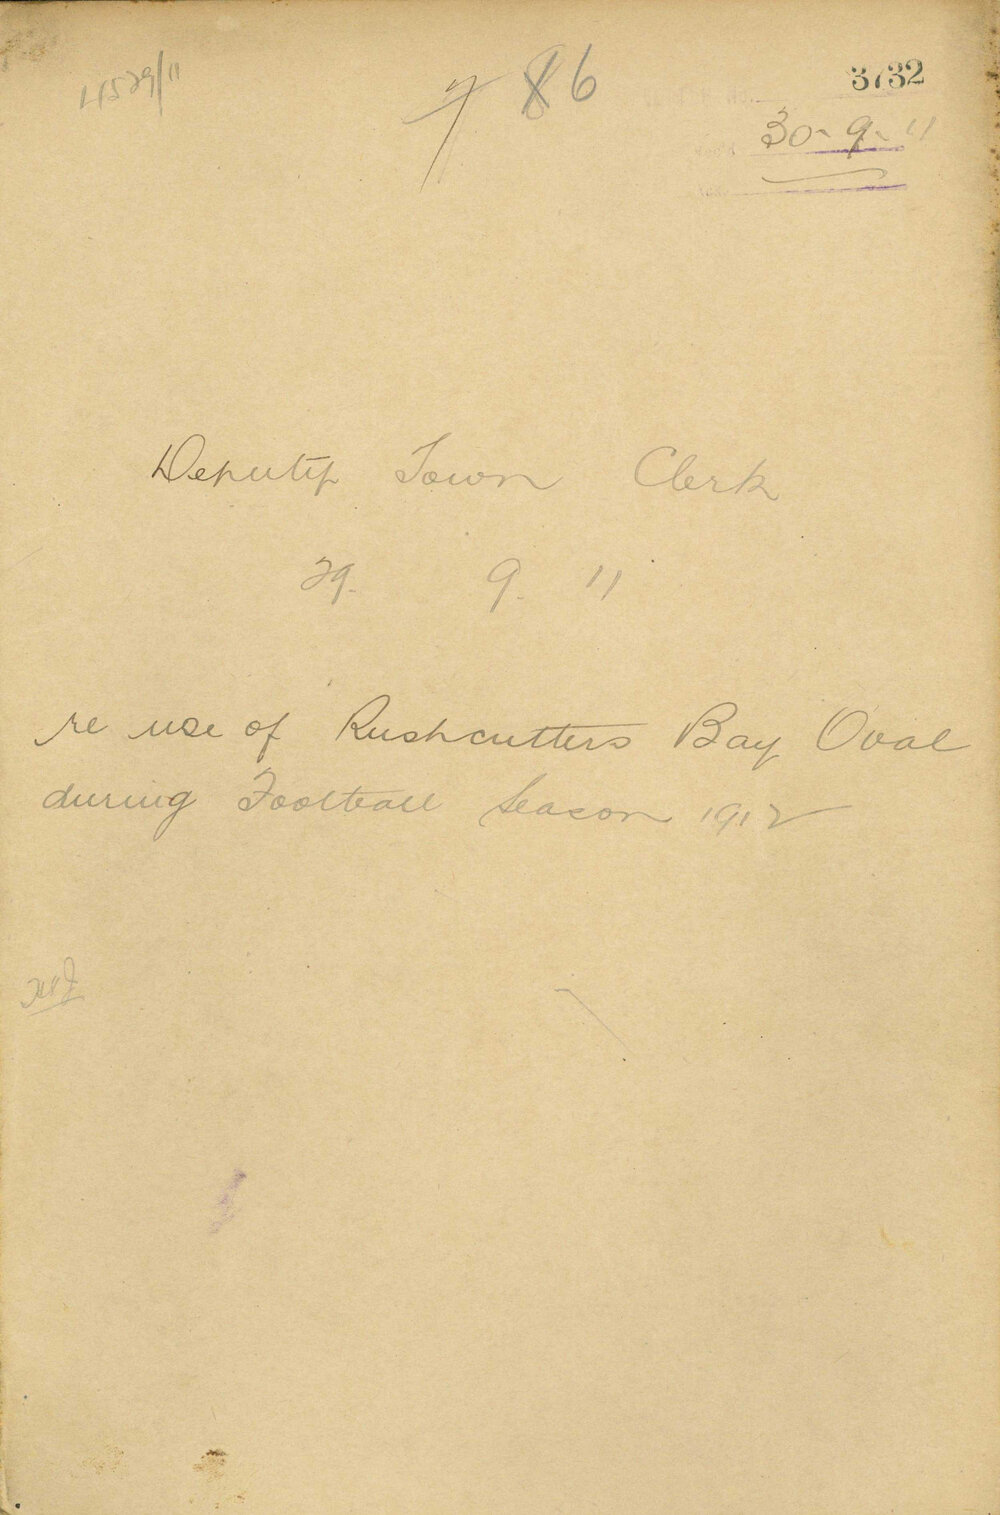 4529/11
86
3732
30-9-11
Deputy Town Clerk
29. 9. 11
re use of Rushcutters Bay Oval
during Football Season 1912